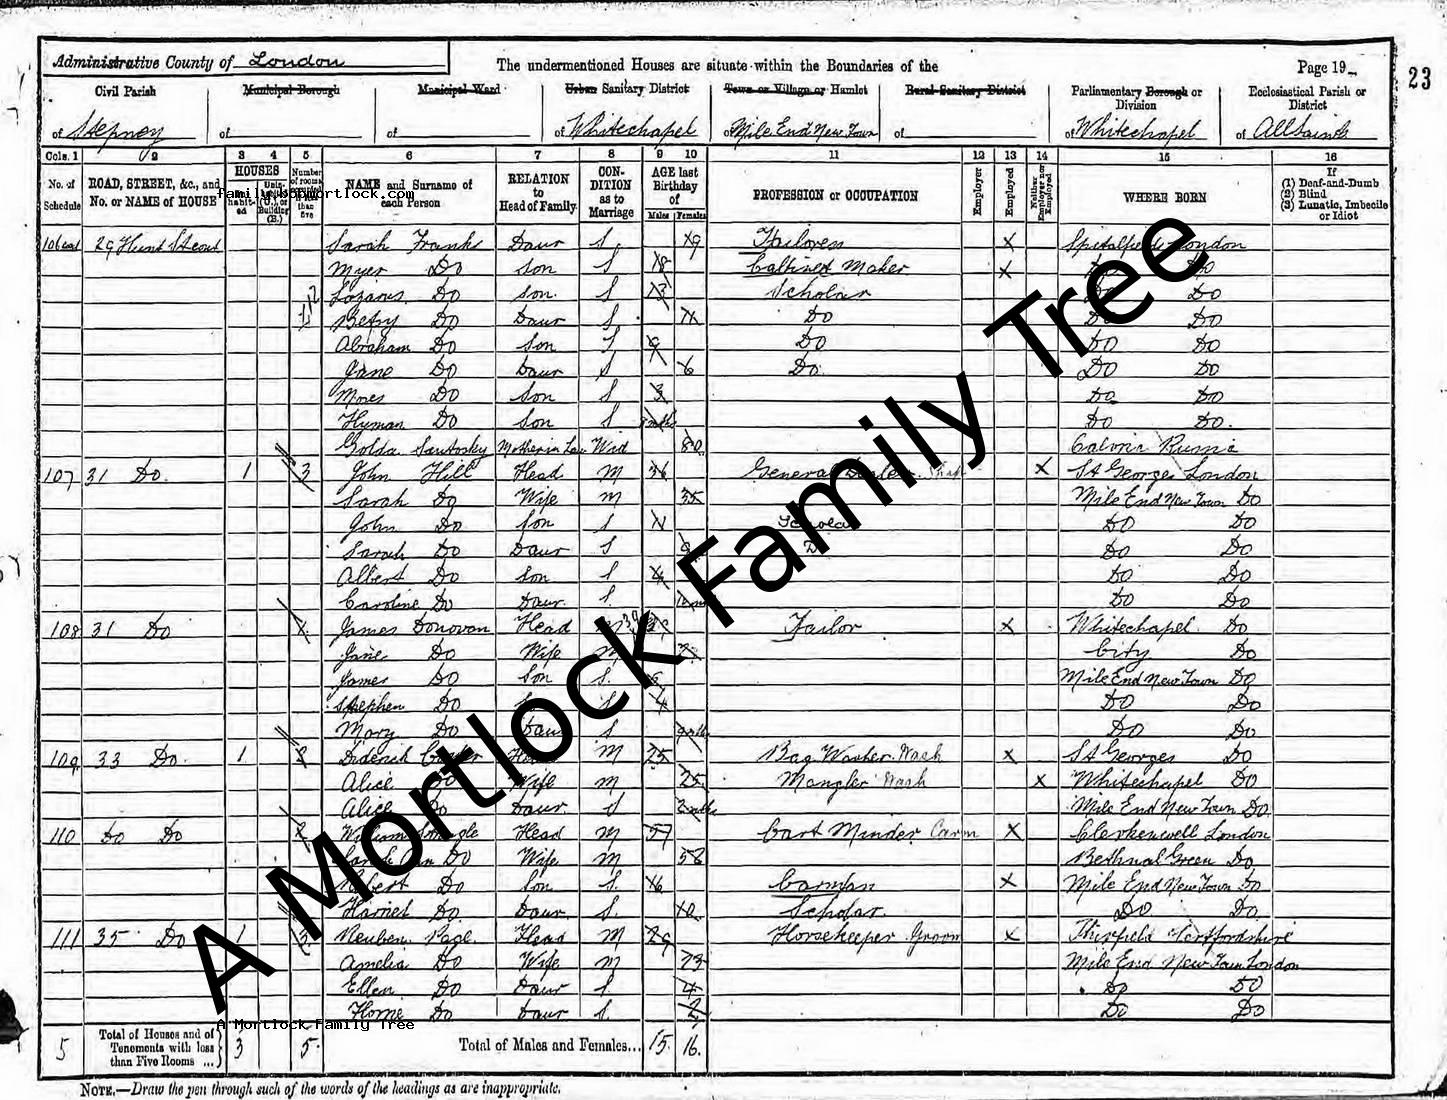 Administrative County of London
The undermentioned Houses are situate within the Boundaries of the
Page 19
23
Civil Parish Municipal Borough Municipal Ward Urban Sanitary District Town or Village or Hamlet Rural Sanitary District Parliamentary Borough or Division Ecclesiastical Parish or District
of Stepney of of of Whitechapel of Mile End New Town of of Whitechapel of All Saints
Cols. 1 2 3 4 5 6 7 8 9 10 11 12 13 14 15 16
No. of Schedule
ROAD, STREET, &c., and No. or NAME of HOUSE
HOUSES
NAME and Surname of each Person
RELATION to Head of Family
CON-DITION as to Marriage
AGE last Birthday of
Males Females
PROFESSION or OCCUPATION
Employer
Employed
Neither Employer nor Employed
WHERE BORN
If
(1) Deaf-and-Dumb
(2) Blind
(3) Lunatic, Imbecile or Idiot
family.bsmortlock.com
29 Hunt St cont Sarah Franks Daur S 19 Tailoress X Spitalfields London
Myer Do Son S 18 Cabinet Maker X Do Do
Lazarus Do Son S 13 Scholar Do Do
Betsy Do Daur S 11 Do Do Do
Abraham Do Son S 9 Do Do Do
Jane Do Daur S 6 Do Do Do
Moses Do Son S 3 Do Do
Hyman Do Son S Do Do
Golda Mother in Law Wid 80 Russia
107 31 Do 1 3 John Hill Head M 36 General Dealer X St Georges London
Sarah Do Wife M 35 Mile End New Town Do
John Do Son S 11 Scholar Do Do
Sarah Do Daur S Do Do Do
Albert Do Son S 4 Do Do
Caroline Do Daur S Do Do
108 31 Do James Donovan Head M Tailor X Whitechapel Do
Jane Do Wife M City Do
James Do Son S Mile End New Town Do
Stephen Do S 4 Do Do
Mary Do Daur S Do Do
109 33 Do 1 2 Diderick Head M 25 Bag Washer Wash X St Georges Do
Alice Do Wife M 25 Mangler Wash X Whitechapel Do
Alice Do Daur S 2 mths Mile End New Town Do
110 Do Do 2 William Head M 57 Cart Minder Carm X Clerkenwell London
Sarah Ann Do Wife M 58 Bethnal Green Do
Robert Do Son S 16 Carman X Mile End New Town Do
Harriet Do Daur S 10 Scholar Do Do
111 35 Do 1 Reuben Page Head M 29 Horsekeeper Groom X Therfield Hertfordshire
Amelia Do Wife M 23 Mile End New Town London
Ellen Do Daur S 4 Do Do
Do Daur S 2 Do Do
A Mortlock Family Tree
A Mortlock Family Tree
5 Total of Houses and of Tenements with less than Five Rooms ... 3 5 Total of Males and Females... 15 16
NOTE.—Draw the pen through such of the words of the headings as are inappropriate.